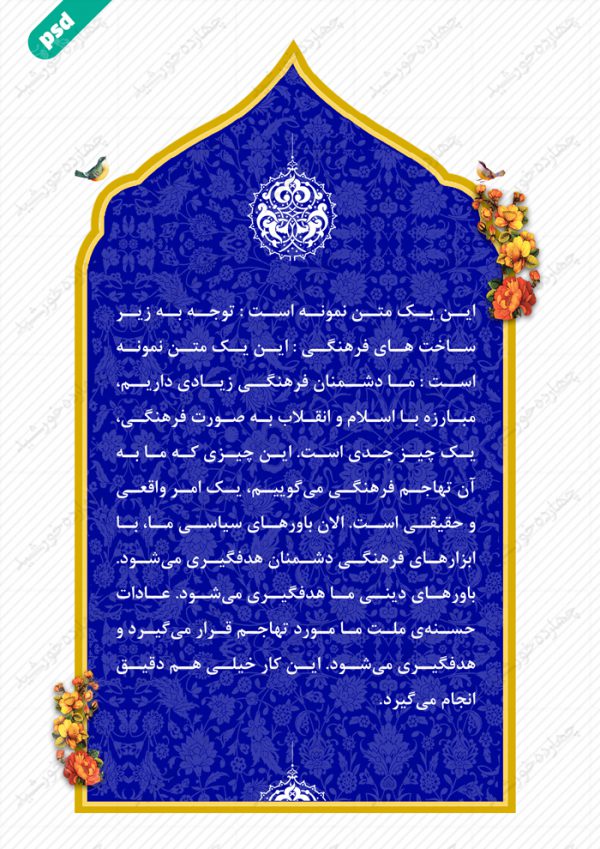 psd
این یک متن نمونه است : توجه به زیر
ساخت های فرهنگی : این یک متن نمونه
است : ما دشمنان فرهنگی زیادی داریم،
مبارزه با اسلام و انقلاب به صورت فرهنگی،
یک چیز جدی است. این چیزی که ما به
آن تهاجم فرهنگی می‌گوییم، یک امر واقعی
و حقیقی است. الان باورهای سیاسی ما، با
ابزارهای فرهنگی دشمنان هدفگیری می‌شود.
باورهای دینی ما هدفگیری می‌شود. عادات
حسنه‌ی ملت ما مورد تهاجم قرار می‌گیرد و
هدفگیری می‌شود. این کار خیلی هم دقیق
انجام می‌گیرد.
چهارده خورشید